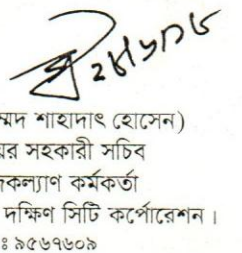 ম্মদ শাহাদাৎ হোসেন)
য়র সহকারী সচিব
দকল্যাণ কর্মকর্তা
দক্ষিণ সিটি কর্পোরেশন।
ঃ ৯৫৬৭৬০৯